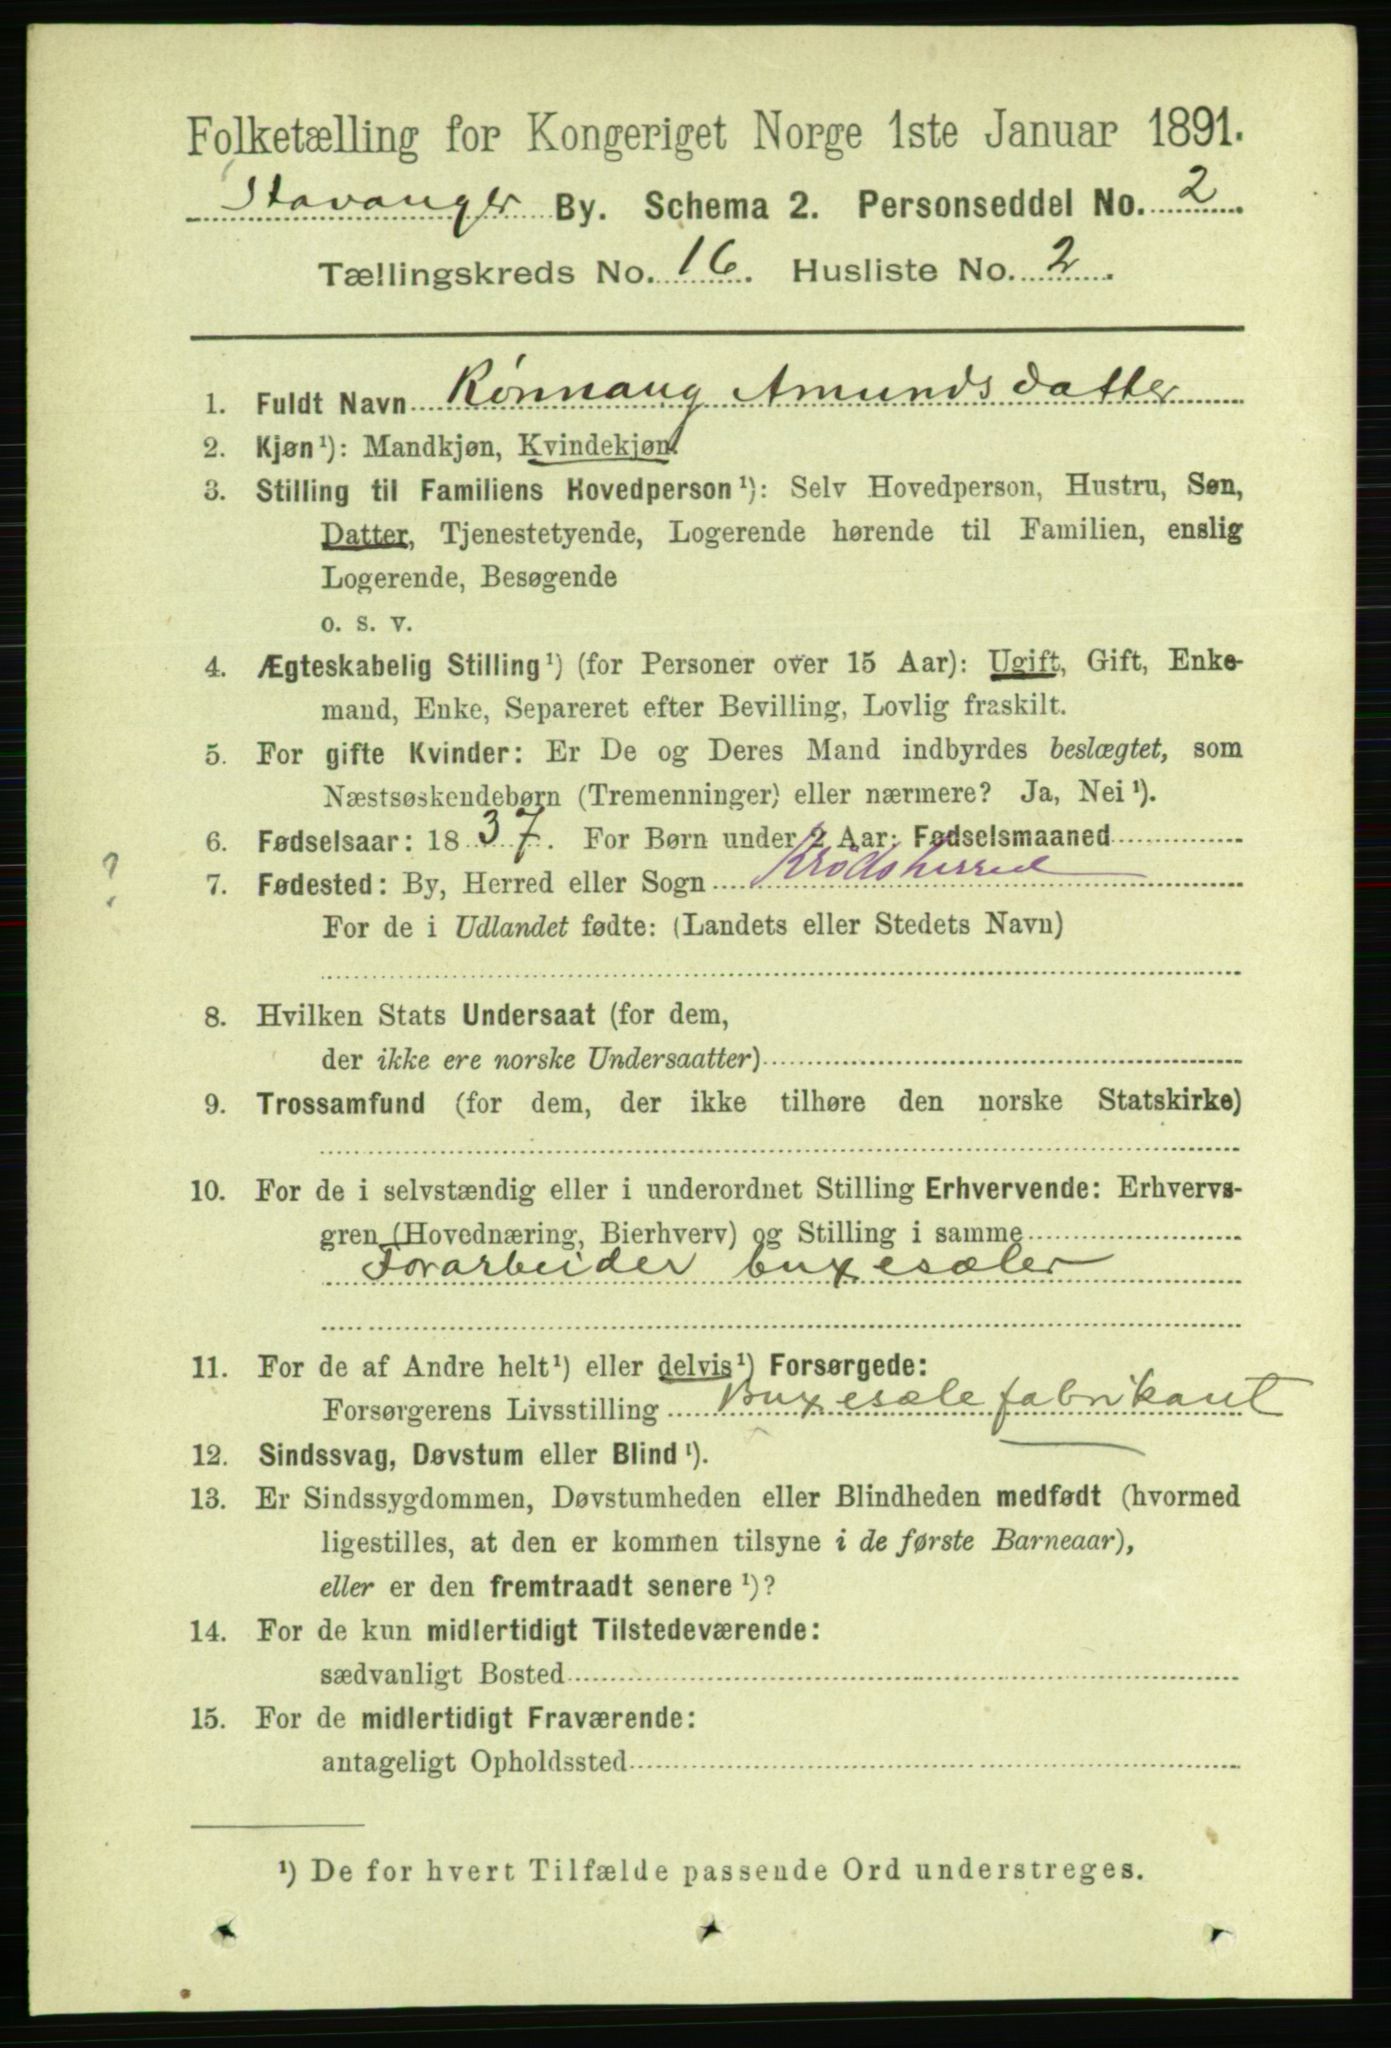 Folketælling for Kongeriget Norge 1ste Januar 1891.
Stavanger By. Schema 2. Personseddel No. 2
Tællingskreds No. 16. Husliste No. 2.
1. Fuldt Navn Rönnaug Amundsdatter
2. Kjøn¹): Mandkjøn, Kvindekjøn.
3. Stilling til Familiens Hovedperson¹): Selv Hovedperson, Hustru, Søn,
Datter, Tjenestetyende, Logerende hørende til Familien, enslig
Logerende, Besøgende
o. s. v.
4. Ægteskabelig Stilling¹) (for Personer over 15 Aar): Ugift, Gift, Enke-
mand, Enke, Separeret efter Bevilling, Lovlig fraskilt.
5. For gifte Kvinder: Er De og Deres Mand indbyrdes beslægtet, som
Næstsøskendebørn (Tremenninger) eller nærmere? Ja, Nei¹).
6. Fødselsaar: 1837. For Børn under 2 Aar: Fødselsmaaned
?
7. Fødested: By, Herred eller Sogn Krödsherred
For de i Udlandet fødte: (Landets eller Stedets Navn)
8. Hvilken Stats Undersaat (for dem,
der ikke ere norske Undersaatter)
9. Trossamfund (for dem, der ikke tilhøre den norske Statskirke)
10. For de i selvstændig eller i underordnet Stilling Erhvervende: Erhvervs-
gren (Hovednæring, Bierhverv) og Stilling i samme
Forarbeider buxesæler
11. For de af Andre helt¹) eller delvis¹) Forsørgede:
Forsørgerens Livsstilling Buxesælefabrikant
12. Sindssvag, Døvstum eller Blind¹).
13. Er Sindssygdommen, Døvstumheden eller Blindheden medfødt (hvormed
ligestilles, at den er kommen tilsyne i de første Barneaar),
eller er den fremtraadt senere¹)?
14. For de kun midlertidigt Tilstedeværende:
sædvanligt Bosted
15. For de midlertidigt Fraværende:
antageligt Opholdssted
¹) De for hvert Tilfælde passende Ord understreges.